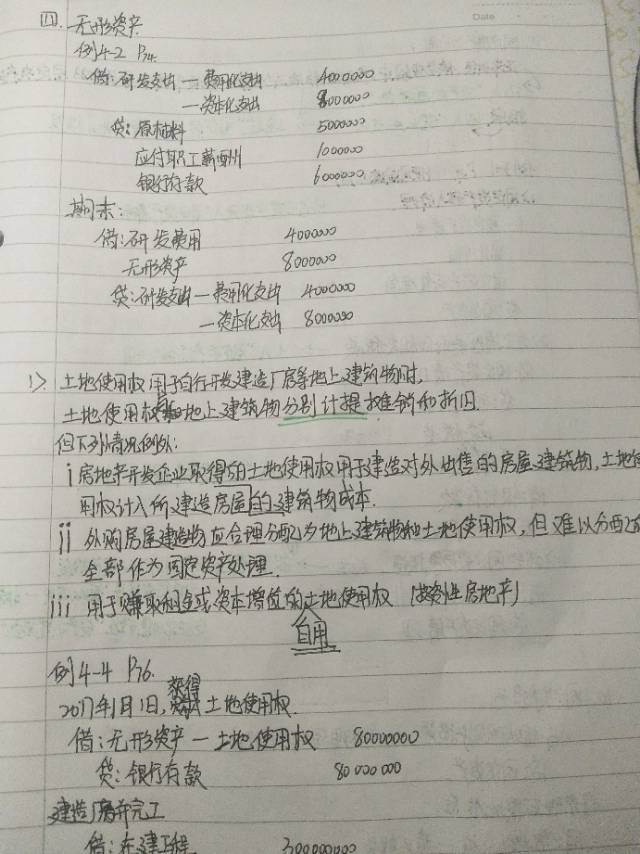 Date
四. 无形资产
例4-2 P74.
借:研发支出—费用化支出 4000000
—资本化支出 8000000
贷:原材料 5000000
应付职工薪酬 1000000
银行存款 6000000
期末:
借:研发费用 4000000
无形资产 8000000
贷:研发支出—费用化支出 4000000
—资本化支出 8000000
1> 土地使用权用于自行开发建造厂房等地上建筑物时,
土地使用权和地上建筑物分别计提摊销和折旧.
但下列情况例外:
i 房地产开发企业取得的土地使用权用于建造对外出售的房屋建筑物,土地使
用权计入所建造房屋的建筑物成本.
ii 外购房屋建造物应合理分配为地上建筑物和土地使用权,但难以分配的
全部作为固定资产处理.
iii 用于赚取租金或资本增值的土地使用权 (投资性房地产)
自用
例4-4 P76.
获得
2017年1月1日, 土地使用权.
借:无形资产—土地使用权 80000000
贷:银行存款 80000000
建造厂房并完工
借:在建工程 300000000